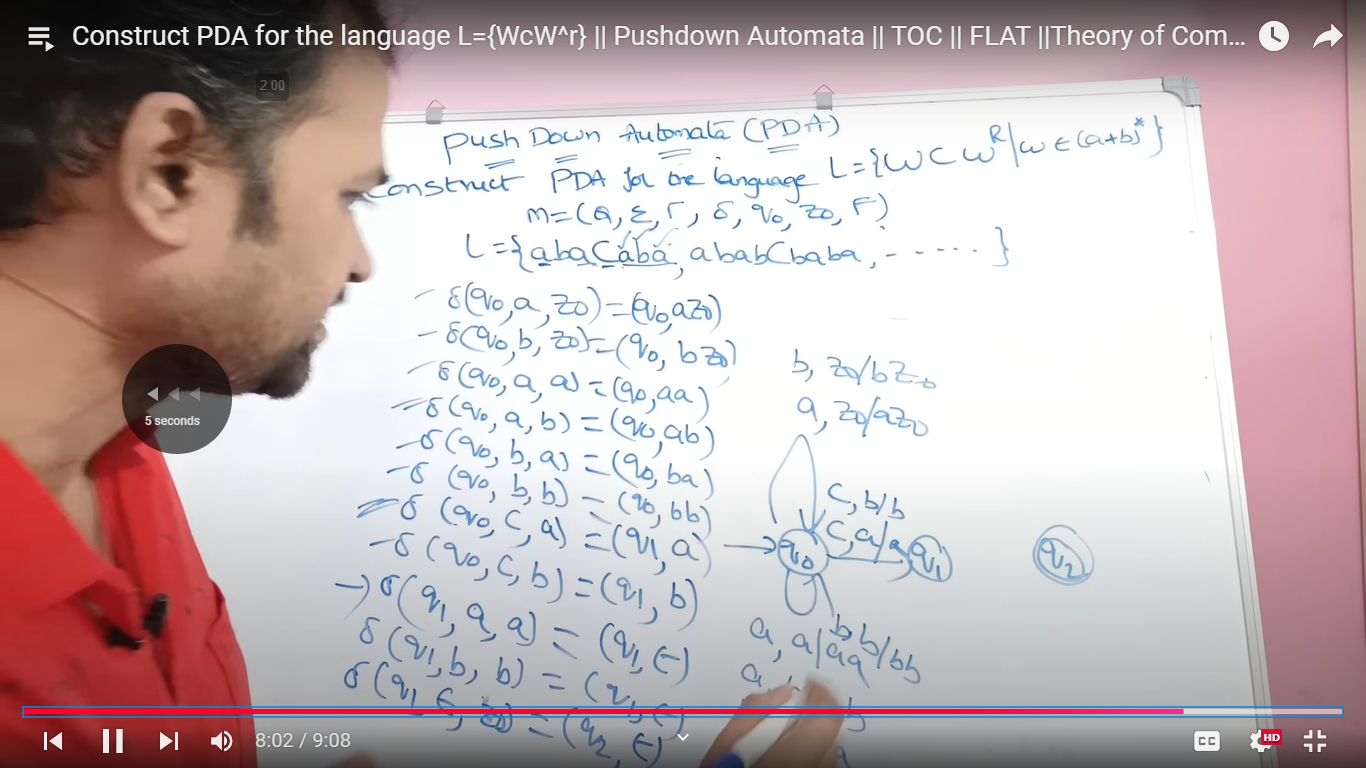 Construct PDA for the language L={WcW^r} || Pushdown Automata || TOC || FLAT ||Theory of Com...
2.00
Push Down Automata (PDA)
Construct PDA for the language L={WCW^R|w∈(a+b)*}
M=(Q, Σ, Γ, δ, q0, z0, F)
L={abaCaba, ababCbaba, - - - - - - }
δ(q0,a,z0)=(q0,az0)
δ(q0,b,z0)=(q0,bz0)
δ(q0,a,a)=(q0,aa)
δ(q0,a,b)=(q0,ab)
δ(q0,b,a)=(q0,ba)
δ(q0,b,b)=(q0,bb)
δ(q0,C,a)=(q1,a)
δ(q0,C,b)=(q1,b)
→δ(q1,a,a)=(q1,ε)
δ(q1,b,b)=(q1,ε)
δ(q1,ε,z0)=(q2,ε)
b, z0/bz0
a, z0/az0
C, b/b
C, a/a
q0
q1
q2
a, a/aa
b b/bb
a,
b
a
5 seconds
8:02 / 9:08
CC
HD